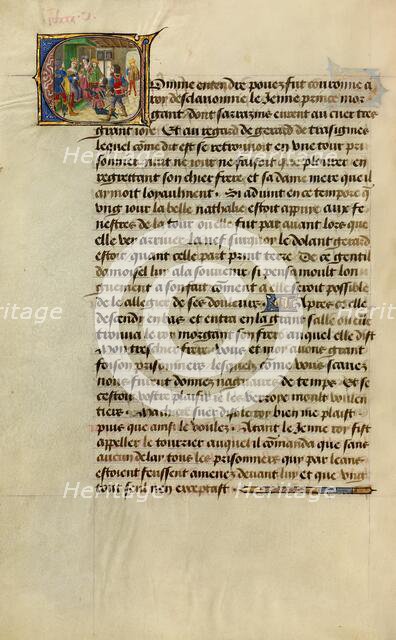 Comme entendre pouez fut couronne a
roy desclauonnie le Jenne prince mor
gant. dont sarrazins eurent au cuer tres
grant ioie. Et au regard de gerard de trasignies
lequel come dit est se retrouuoit en vne tour pri
sonnier nuit ne iour ne faisoit que plourer en
regrettant son chier frere et sa dame mere que il
aymoit loyaulment. Si aduint en ce tempore q
vng iour la belle nathalie estoit appuiee aux fe
nestres de la tour ou elle fut par auant lors que
elle vey arriuer la nef sur quoy le dolant gerard
estoit quant celle part print terre. De ce gentil
damoisel lui ala souuenir si pensa moult lon
guement a son fait coment il seroit possible
de le allegier de ses douleurs. Apres ce elle
descendi en bas et entra en la grant salle ou elle
trouua le roy morgant son frere auquel elle dist
Mon treschier frere vous et moy auons grant
foison prisonniers lesquelz come vous sauez
nous furent donnez na gaires de temps. Et se
cestoit vostre plaisir ie les verroye mont voulen
tiers. Ma chiere suer dist le roy bien me plaist
puis que ainsi le voulez. Atant le Jenne roy fist
appeller le tourrier auquel il comanda que sans
aucun delay tous les prisonniers qui par leans
estoient feussent amenez deuant luy et que vng
tout seul nen exceptast
Heritage
Heritage
Heritage
Heritage
Heritage
Heritage